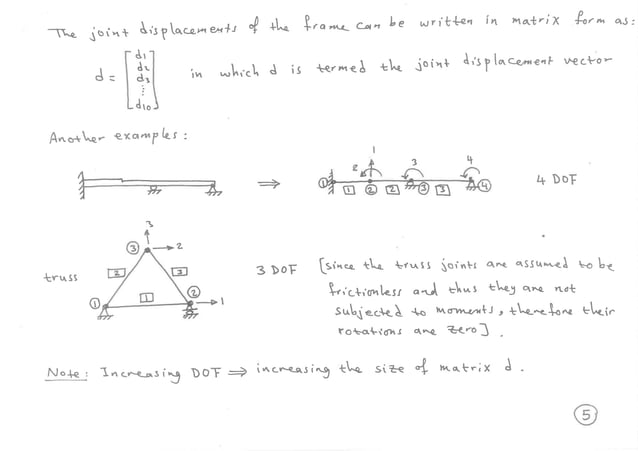 The joint displacements of the frame can be written in matrix form as:
d = [d1 d2 d3 ⋮ d10] in which d is termed the joint displacement vector
Another examples:
1
2 3 4
① 1 ② 2 ③ 3 ④ 4 DOF
⇒
3
③ 2
truss 2 3 3 DOF [since the truss joints are assumed to be
frictionless and thus they are not
① 1 ② 1 subjected to moments, therefore their
rotations are zero].
Note: Increasing DOF ⇒ increasing the size of matrix d.
⑤